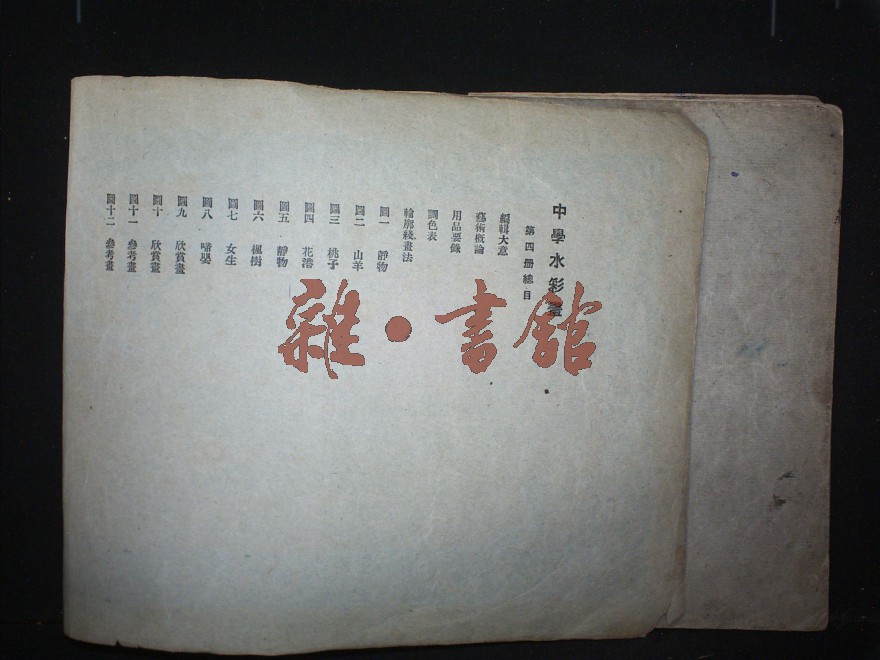 中學水彩畫
第四册總目
編輯大意
藝術概論
用品要錄
調色表
輪廓綫畫法
圖一 靜物
圖二 山羊
圖三 桃子
圖四 花籃
圖五 靜物
圖六 楓樹
圖七 女生
圖八 啼嬰
圖九 欣賞畫
圖十 欣賞畫
圖十一 參考畫
圖十二 參考畫
雜·書館